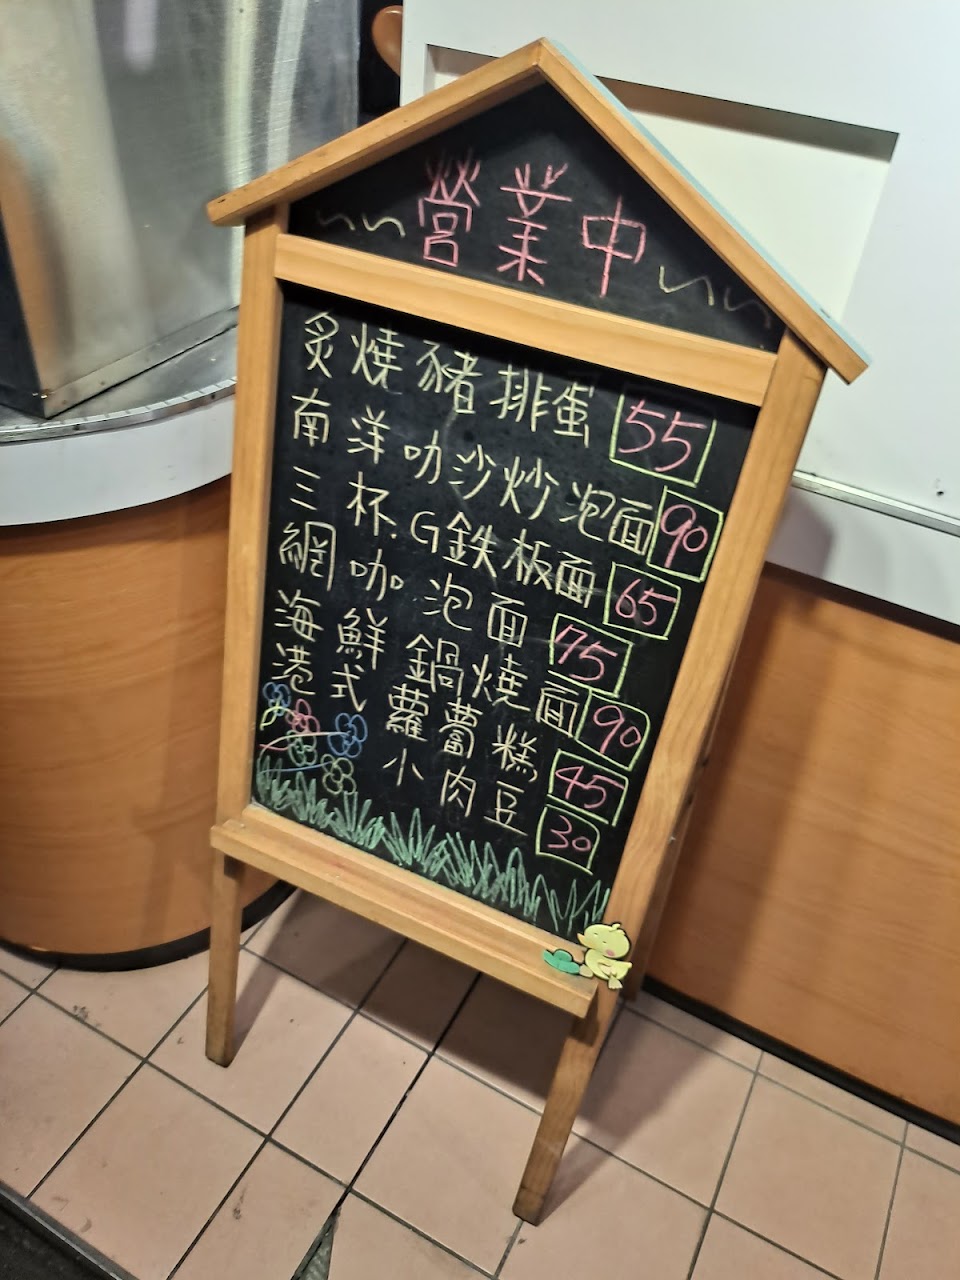 營業中
炙燒豬排蛋 55
南洋叻沙炒泡面 90
三杯.G鉄板面 65
網咖泡面 75
海鮮鍋燒面 90
港式蘿蔔糕 45
小肉豆 30